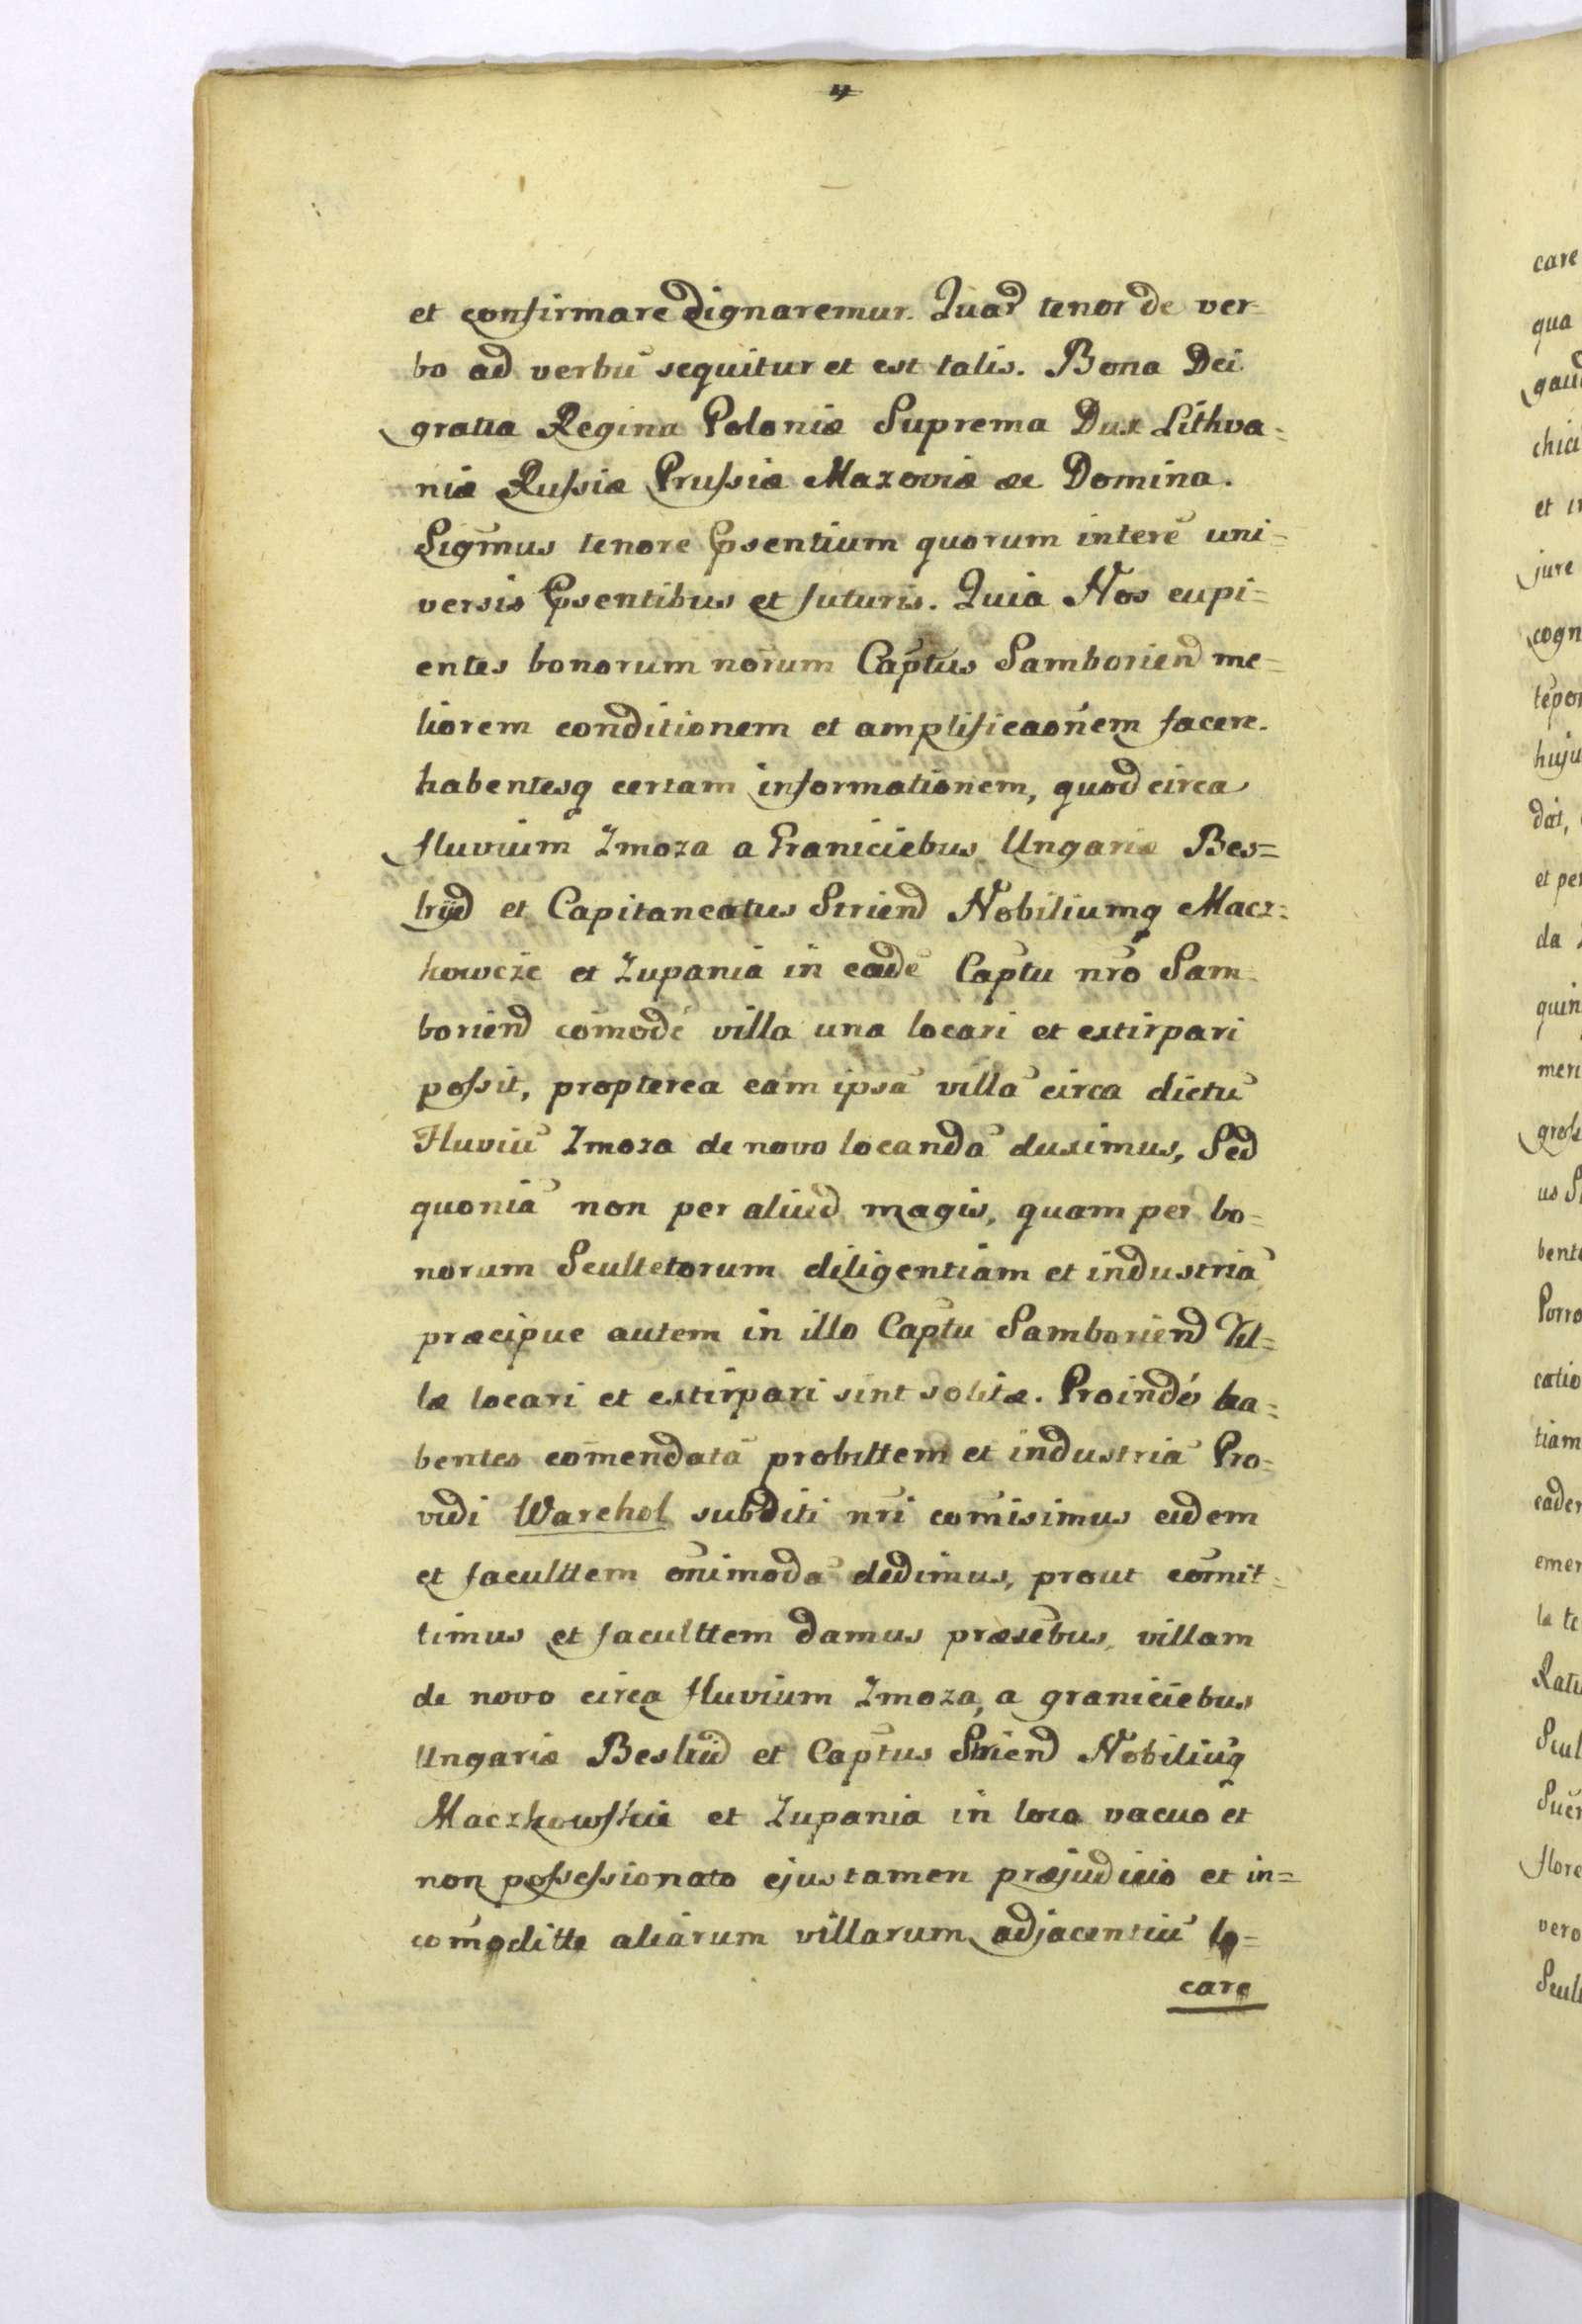 4
et confirmare dignaremur. Quar̃ tenor de ver-
bo ad verbũ sequitur et est talis. Bona Dei
gratia Regina Poloniæ Suprema Dux Lithva=
niæ Russiæ Prussiæ Mazoviæ æc Domina.
Sigm̃us tenore Psentium quorum interẽ uni=
versis Psentibus et futuris. Quia Nos cupi=
entes bonorum nõrum Cap̃tus Samborieñd me=
liorem conditionem et amplificaoñem facere.
habentesq certam informationem, quod circa
fluvium Zmoza a Graniciebus Ungariæ Bes=
kijd et Capitaneatus Striend Nobiliumq Macz=
kowcze et Zupania in eadẽ Cap̃tu nr̃o Sam=
boriend com̃odè villa una locari et extirpari
possit, propterea eam ipsã villã circa dictũ
Fluviũ Zmoza de novo locandã duximus, Sed
quoniã non per aliud magis, quam per bo=
norum Scultetorum diligentiam et industriã
præcipue autem in illo Cap̃tu Samboriend Vil=
læ locari et extirpari sint solitæ. Proindè ha=
bentes com̃endatã probittem et industriã Pro=
vidi Warchol subditi nr̃i com̃isimus eidem
et faculttem om̃imodã dedimus, prout com̃it=
timus et faculttem damus præsẽbus, villam
de novo circa fluvium Zmoza, a graniciebus
Ungariæ Beskid et Cap̃tus Striend Nobiliũq
Maczkowskie et Zupania in loco vacuo et
non possessionato ejus tamen præjudicio et in=
com̃oditte aliarum villarum adjacentiũ lo=
care
care
qua
chici
et
jure
cogn
huju
et pe
da
quin
meri
bent
Porro
catio
tiam
la te
vero